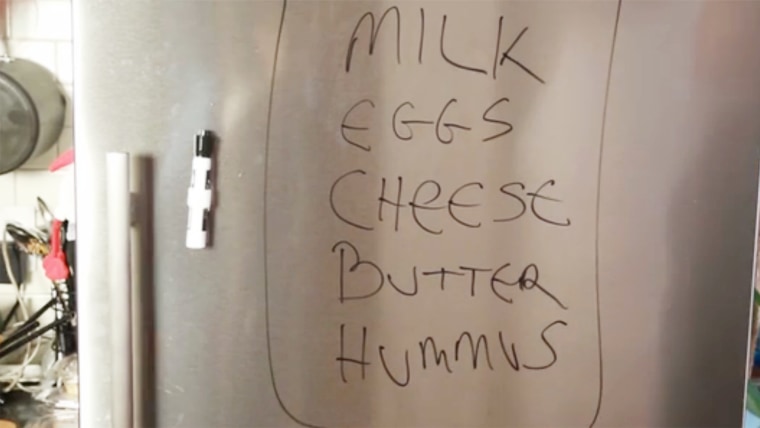 MILK
EGGS
CHEESE
BUTTER
HUMMUS